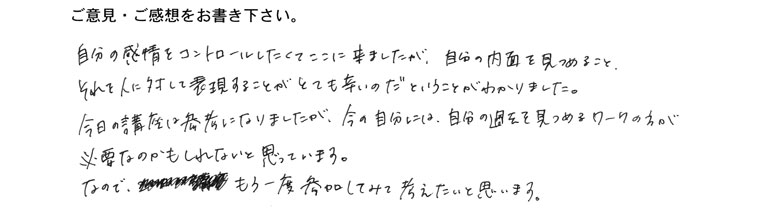 ご意見・ご感想をお書き下さい。
自分の感情をコントロールしたくてここに来ましたが、自分の内面を見つめること、
それを人に対して表現することがとても辛いのだということがわかりました。
今日の講座は参考になりましたが、今の自分には、自分の過去を見つめるワークの方が
必要なのかもしれないと思っています。
なので、もう一度参加してみて考えたいと思います。